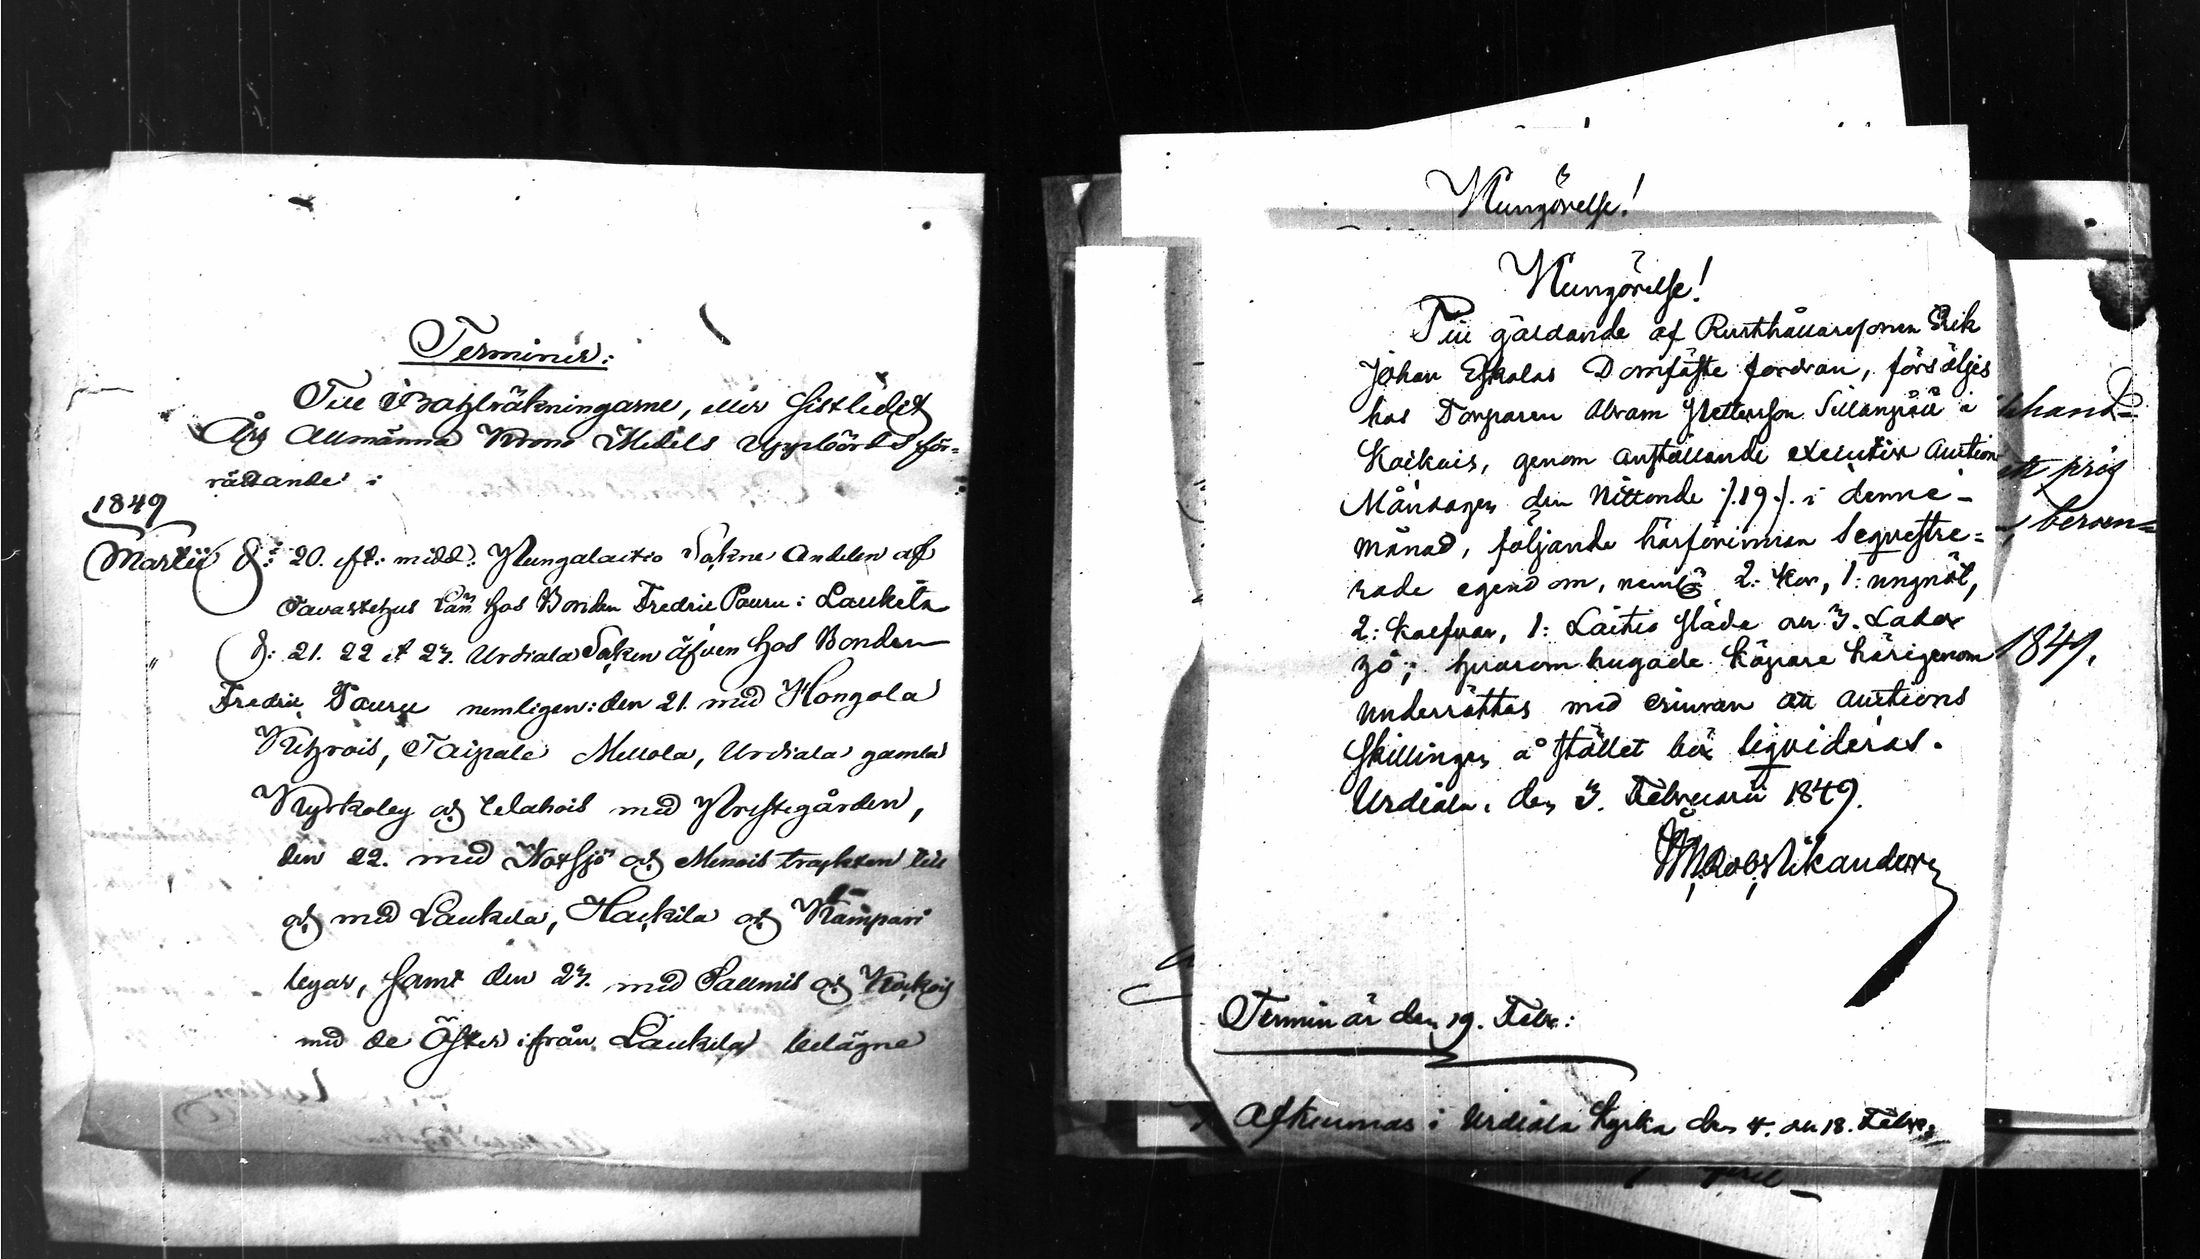 Terminer:
Till Botzträkningarne, eller sistledet
Års Allmänna Krono Medels Uppbörds för-
rättande:
1849
Martii d: 20. eft: midd: Kungalaitio Sokne Andelen af
Tavastehus Län hos Bonden Fredric Pouru i Laukela
d: 21. 22 et 23. Urdiala Soken äfven hos Bonden
Fredric Pouru nemligen: den 21. med Hongola
Kehrois, Taipale Mellola, Urdiala gamla
Kyrkoby och Velahois med Prestegården,
den 22. med Notsjö och Menois trakten till
och med Laukela, Hackila och Kämpari
byar, samt den 23. med Salmis och Kockois
med de Öster ifrån Laukela belägne
Kungörelse!
Kungörelse!
Till gäldande af Rusthållaresonen Erik
Johan Eskolas Domfäste fordran, försäljes
hos Torparen Abram Pettersson Sillanpää i
Koikois, genom anställande executiv Auction
Måndagen den Nittonde /.19./ i denne-
månad, följande härförinnan Seqvestre=
rade egendom, neml: 2: Kor, 1: ungnöt,
2: Kalfvar, 1: Laitio släde och 3. Lador
hö; hvarom hugade köpare härigenom
underrättas med erinran att auctions
skillingen å stället bör liqvideras.
Urdiala, den 3. Februarii 1849.
Rob. Nikander
Termin är den 19. Febr:
Afkunnas i Urdiala Kyrka den 4. och 18. Febr:
hand=
ett pris
1849.